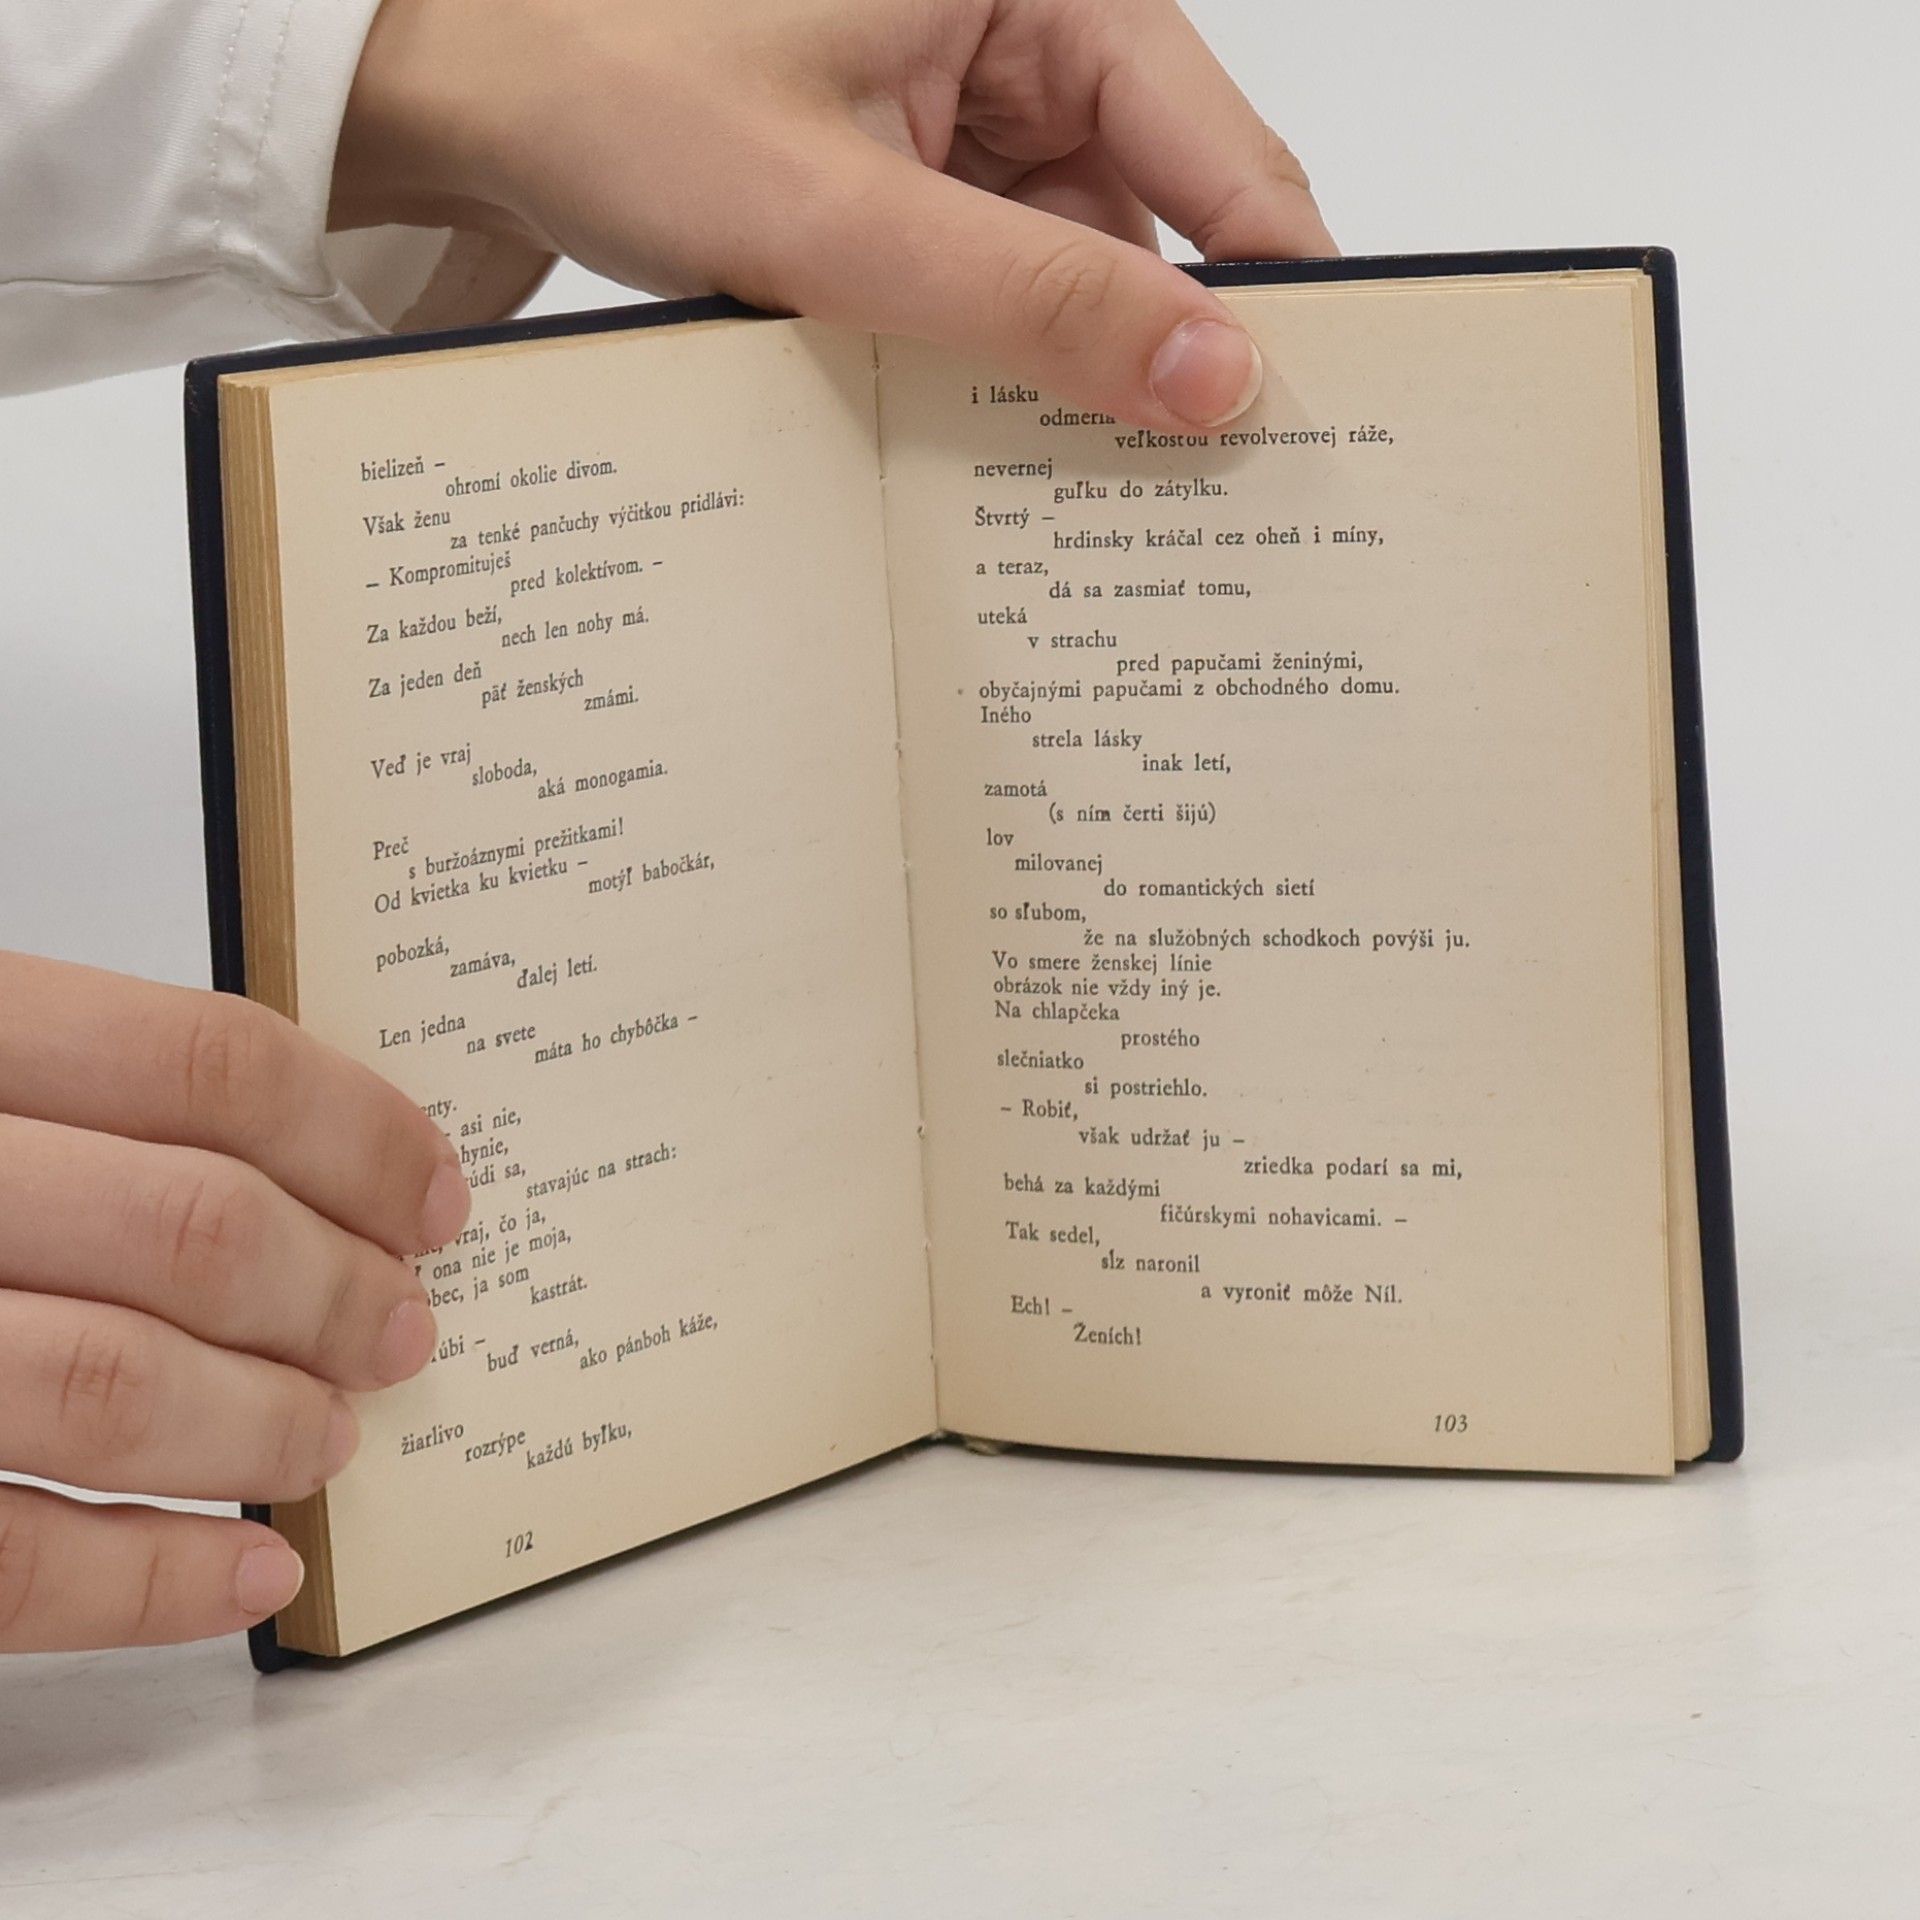 bielizeň –
ohromí okolie divom.
Však ženu
za tenké pančuchy výčitkou pridlávi:
– Kompromituješ
pred kolektívom. –
Za každou beží,
nech len nohy má.
Za jeden deň
päť ženských
zmámi.
Veď je vraj
sloboda,
aká monogamia.
Preč
s buržoáznymi prežitkami!
Od kvietka ku kvietku –
motýľ babočkár,
pobozká,
zamáva,
ďalej letí.
Len jedna
na svete
máta ho chybôčka –
asi nie,
sa,
stavajúc na strach:
vraj, čo ja,
ona nie je moja,
ja som
kastrát.
–
buď verná,
ako pánboh káže,
žiarlivo
rozrýpe
každú byľku,
102
i lásku
veľkosťou revolverovej ráže,
nevernej
guľku do zátylku.
Štvrtý –
hrdinsky kráčal cez oheň i míny,
a teraz,
dá sa zasmiať tomu,
uteká
v strachu
pred papučami ženinými,
obyčajnými papučami z obchodného domu.
Iného
strela lásky
inak letí,
zamotá
(s ním čerti šijú)
lov
milovanej
do romantických sietí
so sľubom,
že na služobných schodkoch povýši ju.
Vo smere ženskej línie
obrázok nie vždy iný je.
Na chlapčeka
prostého
slečniatko
si postriehlo.
– Robiť,
však udržať ju –
zriedka podarí sa mi,
behá za každými
fičúrskymi nohavicami. –
Tak sedel,
sĺz naronil
a vyroniť môže Níl.
Ech! –
Ženích!
103